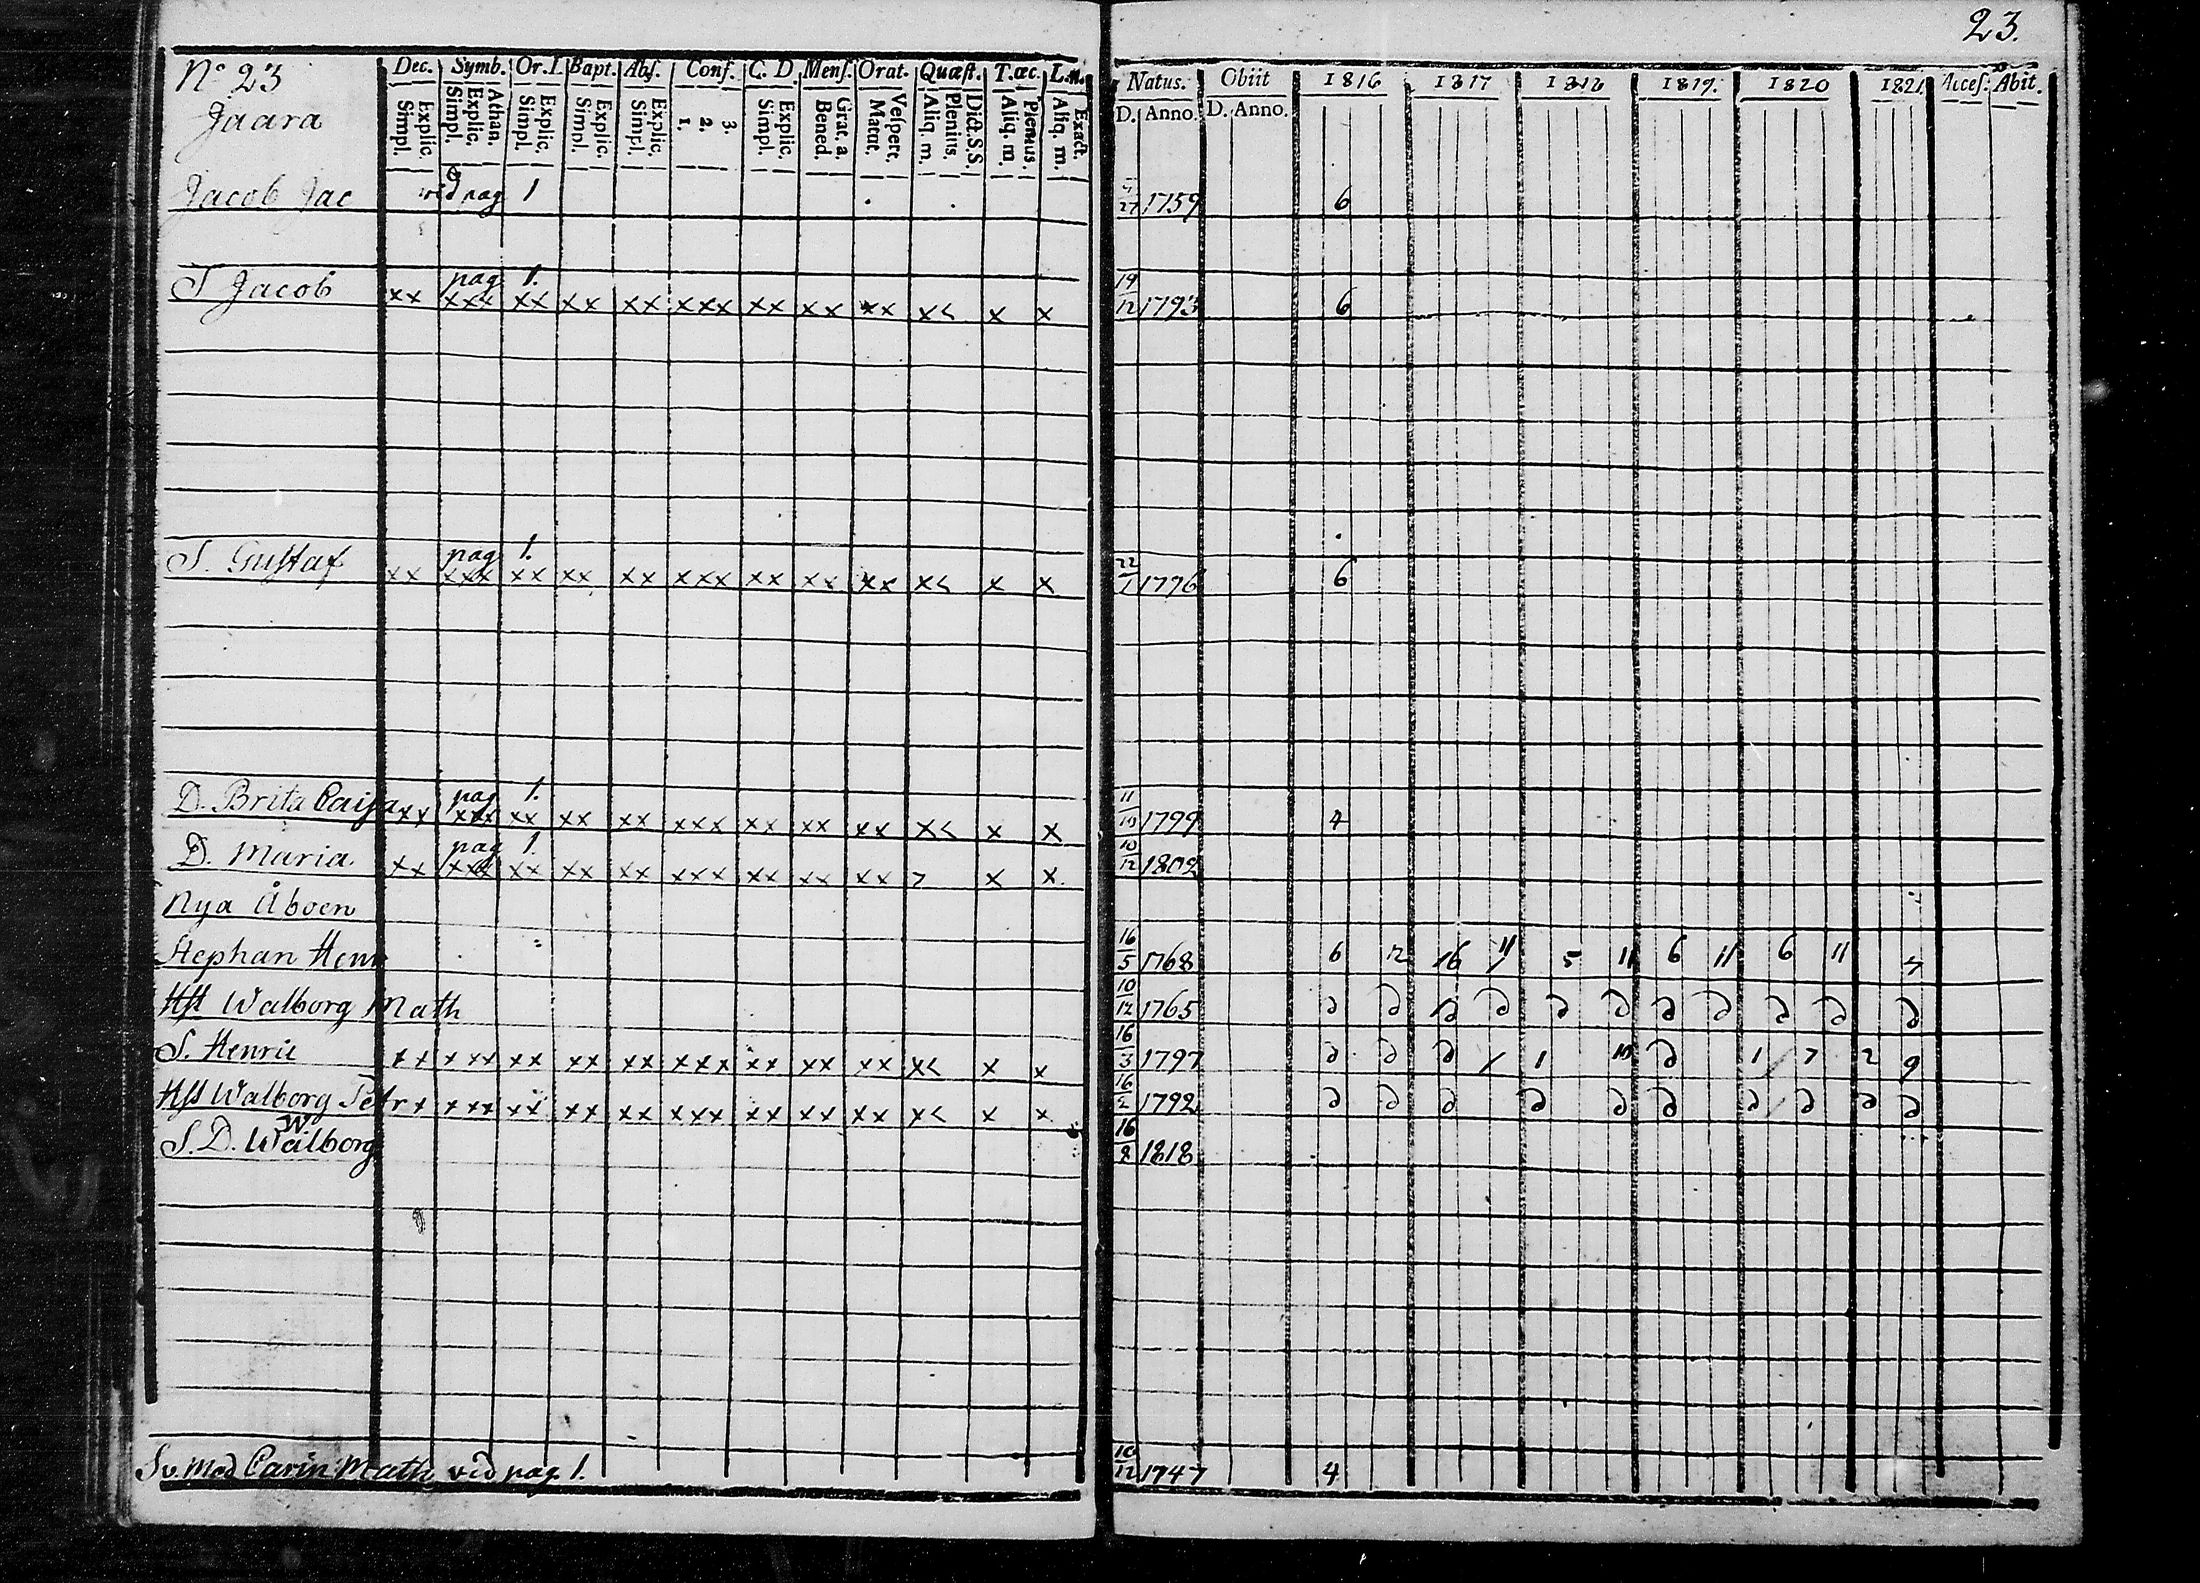 23.
No 23
Jaara
Dec. Symb. Or. D. Bapt. Abſ. Conf. C. D. Menſ. Orat. Quæſt. T. œc. L. n.
Explic. Simpl. Athan. Explic. Simpl. Explic. Simpl. Explic. Simpl. Explic. Simpl. 3. 2. 1. Explic. Simpl. Grat. a. Bened. Veſpert. Matut. Dict. S. S. Plenius. Aliq. m. Plenius. Aliq. m. Exact. Aliq. m.
Natus. Obiit 1816 1817 1818 1819. 1820 1821 Acceſ. Abit.
D. Anno. D. Anno.
Jacob Jac vid pag 1 27 1759 6
pag 1.
S Jacob xx xxx xx xx xx xxx xx xx xx x< x x 19/12 1793 6
pag 1.
S. Gustaf xx xxx xx xx xx xxx xx xx xx x< x x 22/1 1796 6
pag 1.
D. Brita Caisa xx xxx xx xx xx xxx xx xx xx x< x x 11/10 1799 4
pag 1.
D. Maria xx xxx xx xx xx xxx xx xx xx > x x 10/12 1802
Nya Åboen
Stephan Henr 16/5 1768 6 12 16 11 5 11 6 11 6 11 4
Hst Walborg Math 10/12 1765
S. Henric xx xxx xx xx xx xxx xx xx xx x< x x 16/3 1797 1 10 1 7 2 9
Hst Walborg Petr x xxx xx xx xx xxx xx xx xx x< x x 16/2 1792
W.
S. D. Walborg 16/8 1818
Sv. mod Carin Math vid pag 1. 10/12 1747 4